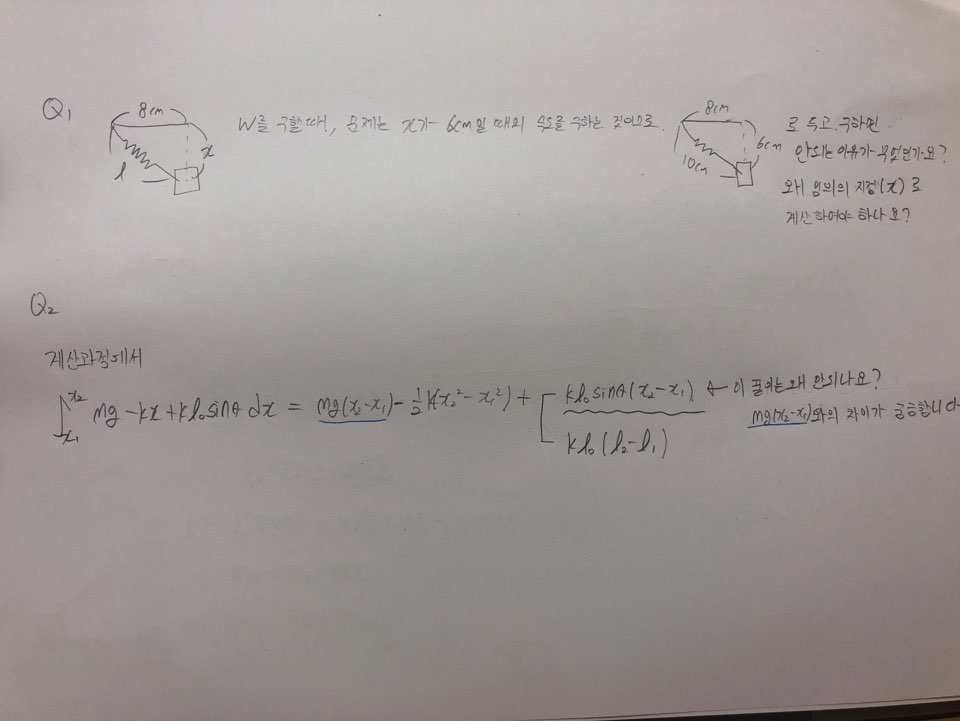 Q1
8cm
x
l
W를 구할때, 문제는 x가 6cm일 때의 속도를 구하는 것이므로
8cm
6cm
10cm
로 두고 구하면
안되는 이유가 무엇인가요?
왜 임의의 지점(x)로
계산하여야 하나요?
Q2
계산과정에서
∫_{x1}^{x2} mg - kx + kl₀sinθ dx = mg(x₂-x₁) - ½k(x₂²-x₁²) + [ kl₀sinθ(x₂-x₁) ← 이 풀이는 왜 안되나요?
mg(x₂-x₁)와의 차이가 궁금합니다
kl₀(l₂-l₁)